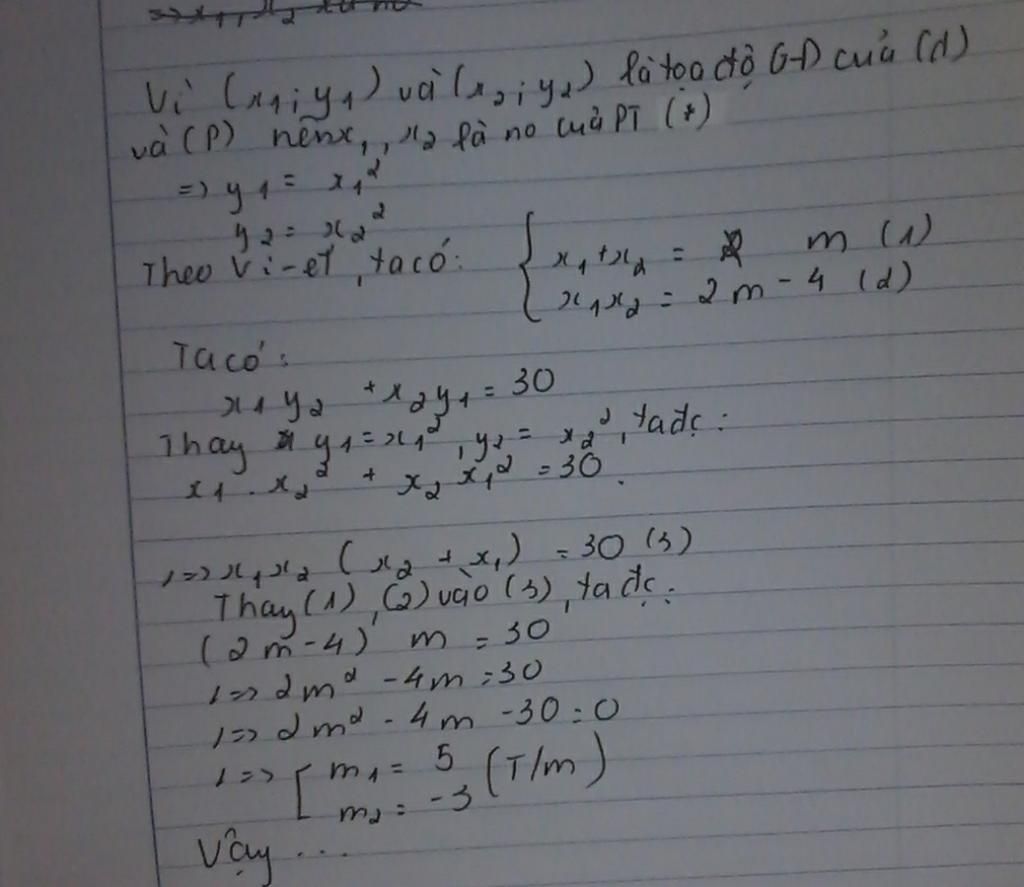 => x₁, x₂
Vì (x₁; y₁) và (x₂; y₂) là toạ độ GĐ của (d)
và (P) nên x₁, x₂ là no của PT (*)
=> y₁ = x₁²
y₂ = x₂²
Theo Vi-et, ta có: { x₁ + x₂ = m (1)
x₁x₂ = 2m - 4 (2)
Ta có:
x₁y₂ + x₂y₁ = 30
Thay y₁ = x₁², y₂ = x₂², ta đc:
x₁ . x₂² + x₂ x₁² = 30.
<=> x₁x₂ (x₂ + x₁) = 30 (3)
Thay (1), (2) vào (3), ta đc:
(2m - 4) m = 30
<=> 2m² - 4m = 30
<=> 2m² - 4m - 30 = 0
<=> [ m₁ = 5 (T/m)
m₂ = -3
Vậy ...